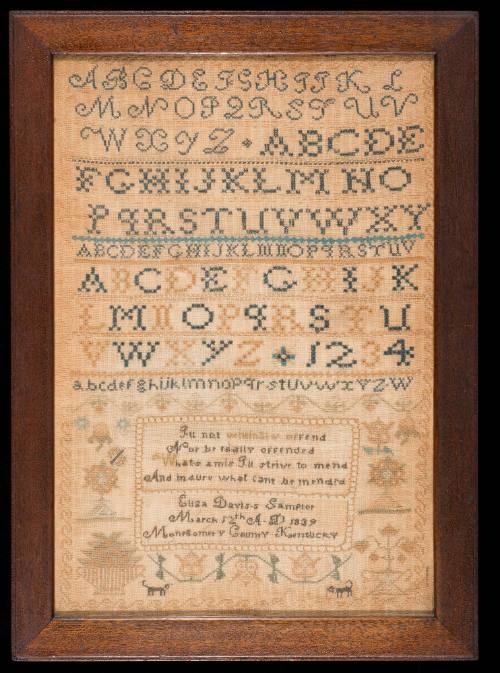 A B C D E F G H I J K L
M N O P Q R S T U V
W X Y Z A B C D E
F G H I J K L M N O
P q R S T U V W X Y
A B C D E F G H I J K L M N O P q R S T U V
A B C D E F G H I J K
L M N O P q R S T U
V W X Y Z 1 2 3 4
a b c d e f g h i j k l m n o p q r s t u v w x y z W
I'll not willingly offend
Nor be easily offended
Whats amis I'll strive to mend
And indure what cant be mended
Eliza Davis-s Sampler
March 12th A-D 1839
Montgomery County Kentucky